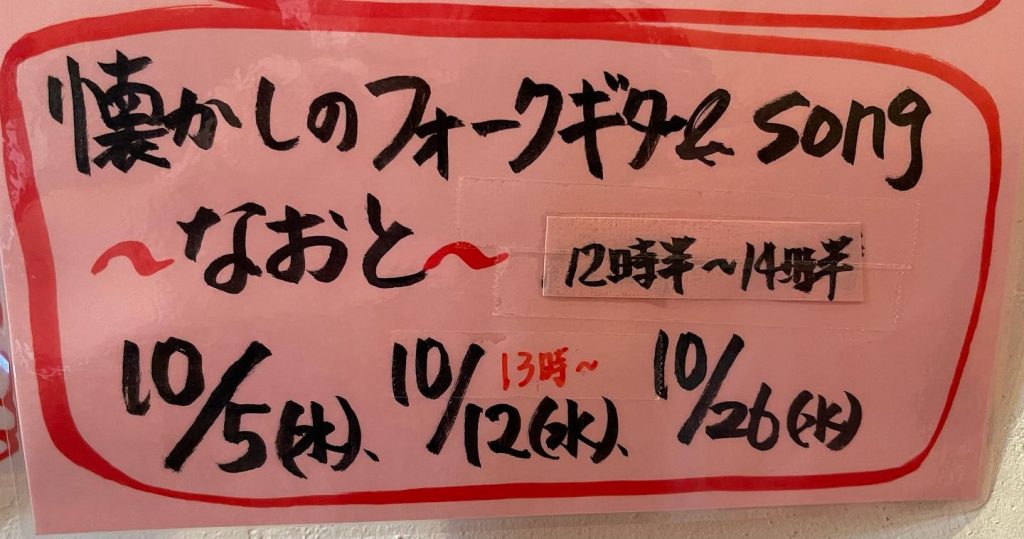 懐かしのフォークギター& song
～なおと～ 12時半～14時半
13時～
10/5(水)、10/12(水)、10/26(水)